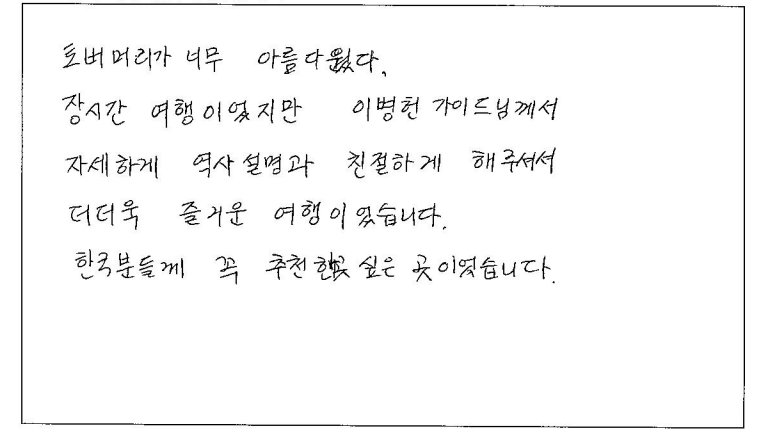 토버머리가 너무 아름다웠다.
장시간 여행이었지만 이병헌 가이드님께서
자세하게 역사설명과 친절하게 해주셔서
더더욱 즐거운 여행이었습니다.
한국분들께 꼭 추천 싶은 곳이었습니다.